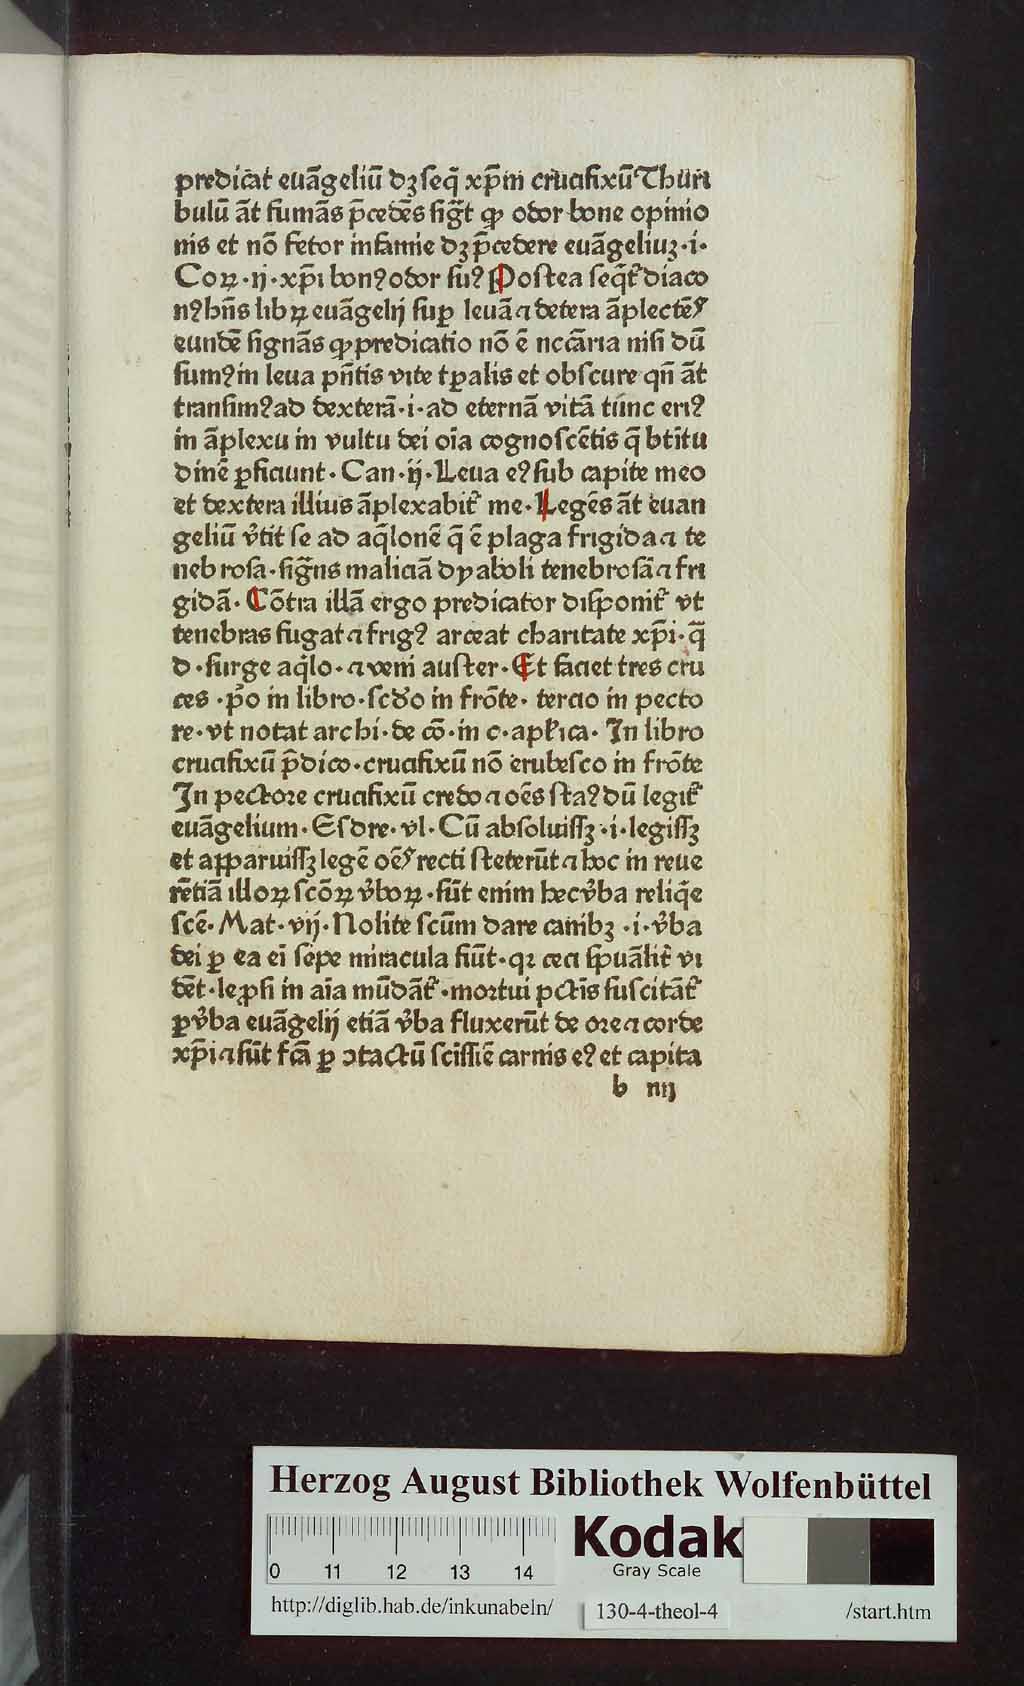 predicat euāgeliū dꝫ seq̄ xp̄m crucifixū Thuri
bulū āt fumās p̄cedēs siḡt ꝙ odor bone opinio
nis et nō fetor infamie dꝫ p̄cedere euāgeliuꝫ·i·
Coꝝ·ij·xp̄i bonꝰ odor suꝰ Postea seq̄t᷑ diaco
nꝰ hn̄s libꝝ euāgelij suꝑ leuā ⁊ detera āplectēs
eundē signās ꝙ predicatio nō ē nccāria nisi dū
sumꝰ in leua pn̄tis vite tꝑalis et obscure qn̄ āt
transimꝰ ad dexterā·i·ad eternā vitā tunc eriꝰ
in āplexu in vultu dei oīa cognoscētis q̄ btītu
dinē ꝑficiunt·Can·ij·Leua eꝰ sub capite meo
et dextera illius āplexabit᷑ me·Legēs āt euan
geliū v̓tit se ad aq̄lonē q̄ ē plaga frigida ⁊ te
nebrosa·siḡns maliciā dyaboli tenebrosā ⁊ fri
gidā·Cōtra illā ergo predicator disponit᷑ vt
tenebras fugat ⁊ frigꝰ arceat charitate xp̄i·q̄
d·surge aq̄lo·⁊ veni auster·Et faciet tres cru
ces·p̓o in libro·scd̓o in frōte·tercio in pecto
re·vt notat archi·de cō·in c·apl̓ica·In libro
crucifixū p̄dico·crucifixū nō erubesco in frōte
In pectore crucifixū credo ⁊ oēs staꝰ dū legit᷑
euāgelium·Esdre·vl·Cū absoluissꝫ·i·legissꝫ
et apparuissꝫ legē oēs recti steterūt ⁊ hoc in reue
rētiā illoꝝ scōꝝ v̓boꝝ·sūt enim hec v̓ba reliq̄e
scē·Mat·vij·Nolite scūm dare canibꝫ·i·v̓ba
dei ꝑ ea ei sepe miracula fiūt·qꝛ ceci spūālit̓ vi
dēt·lep̱si in aīa mūdāt᷑·mortui pctīs suscitāt᷑
ꝑ v̓ba euāgelij etiā v̓ba fluxerūt de ore ⁊ corde
xp̄i ⁊ sūt fcā ꝑ ↄtactū scissiē carnis eꝰ et capita
b iiij
Herzog August Bibliothek Wolfenbüttel
0 11 12 13 14
Kodak
Gray Scale
http://diglib.hab.de/inkunabeln/ 130-4-theol-4 /start.htm